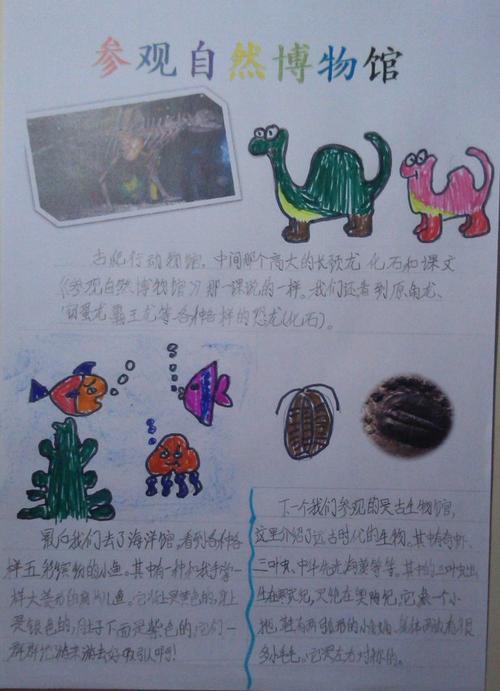 参观自然博物馆
古爬行动物馆，中间那个高大的长颈龙化石和课文
《参观自然博物馆》那一课说的一样。我们还看到原角龙、
窃蛋龙霸王龙等各种各样的恐龙(化石)。
最后我们去了海洋馆，看到各种各
样五彩缤纷的小鱼。其中有一种和我手掌一
样大
黄色的，身上
是银色的，肚子下面是紫色的，它们一
群群地游来游去好吸引人啊！
下一个我们参观的是古生物馆，
这里介绍了远古时代的生物。其中有奇虾、
三叶虫、海藻等等。其中的三叶虫出
生在寒武纪，灭绝在奥陶纪，它像一个小
很
多小毛，它是左右对称的。